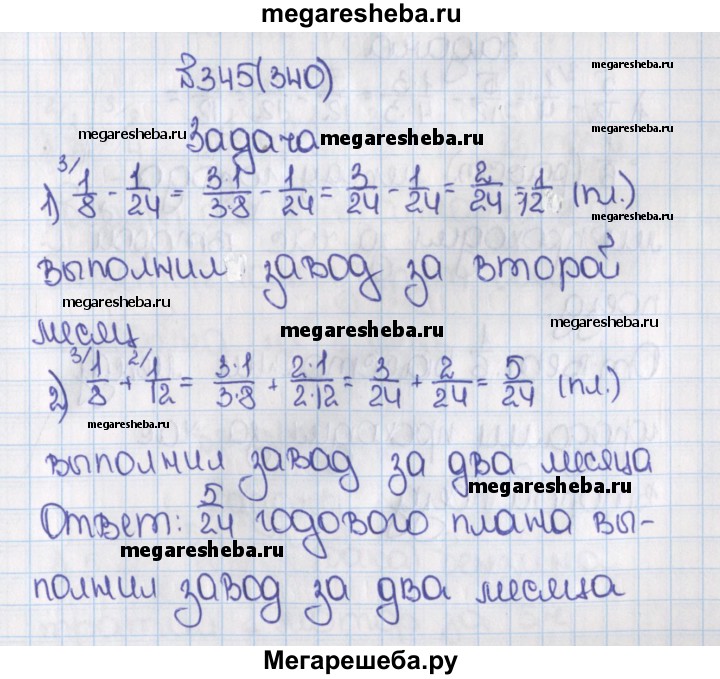 megaresheba.ru
№345(340)
megaresheba.ru
megaresheba.ru
Задача
megaresheba.ru
1) ³⁄ 1/8 - 1/24 = 3·1/3·8 - 1/24 = 3/24 - 1/24 = 2/24 = 1/12 (пл.)
megaresheba.ru
выполнил завод за второй
megaresheba.ru
месяц
megaresheba.ru
megaresheba.ru
2) ³⁄ 1/8 + ²⁄ 1/12 = 3·1/3·8 + 2·1/2·12 = 3/24 + 2/24 = 5/24 (пл.)
megaresheba.ru
выполнил завод за два месяца
megaresheba.ru
Ответ: 5/24 годового плана вы-
megaresheba.ru
полнил завод за два месяца
Мегарешеба.ру